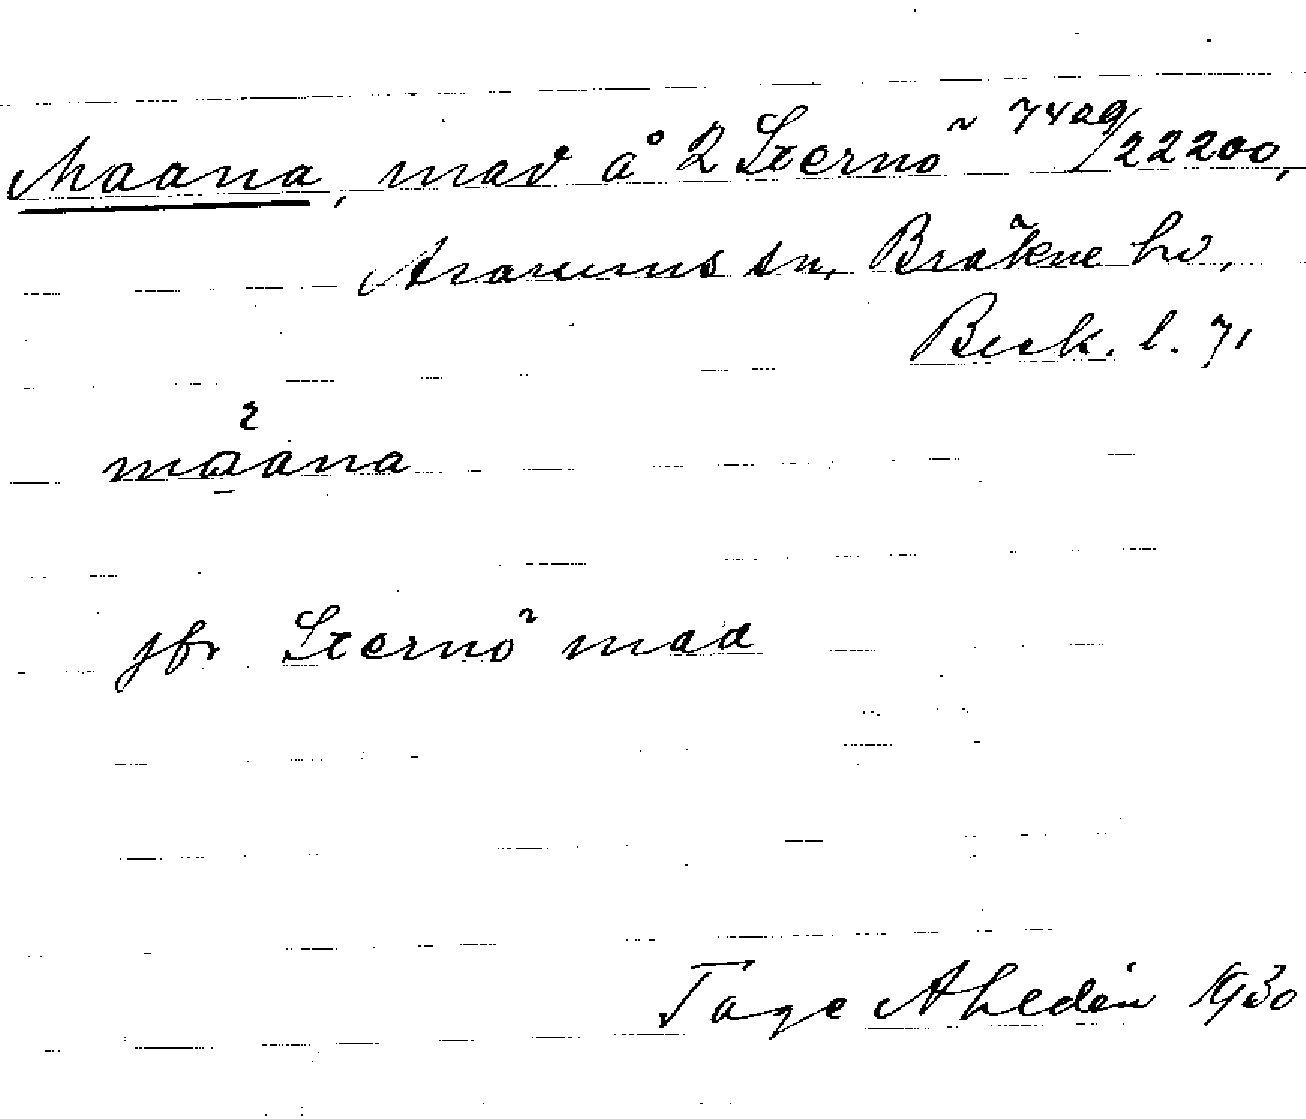 Maana, mad å 2 Sternö 7429/22200,
Asarums sn, Bräkne hd,
Besk. l. 71
maana
jfr Sternö mad
Tage Ahldén 1930